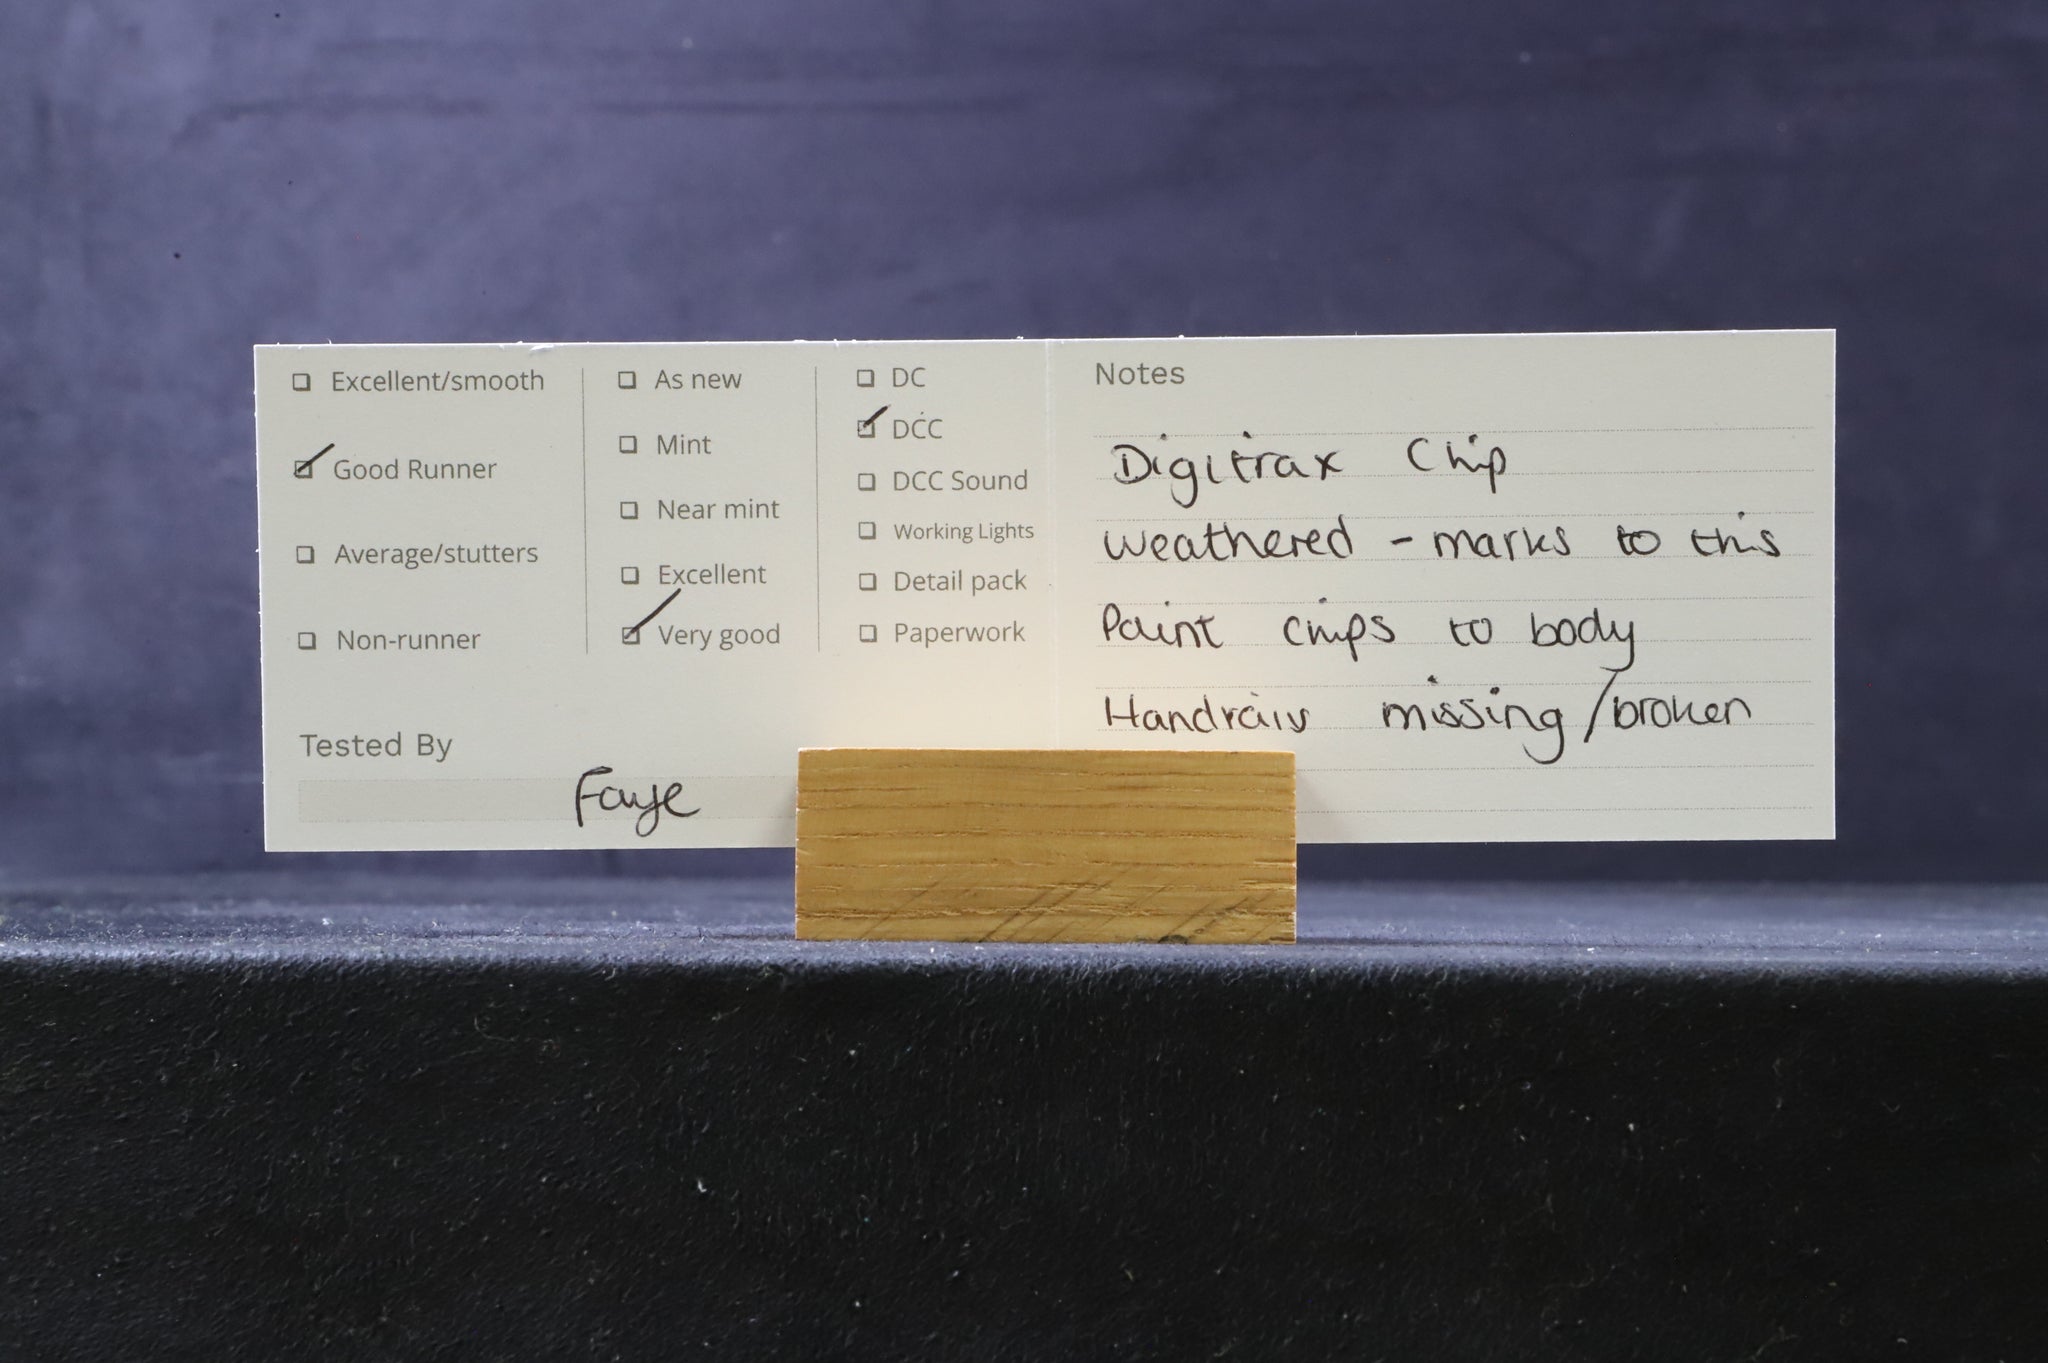 Excellent/smooth
Good Runner
Average/stutters
Non-runner
As new
Mint
Near mint
Excellent
Very good
DC
DCC
DCC Sound
Working Lights
Detail pack
Paperwork
Tested By
Faye
Notes
Digitrax Chip
Weathered - marks to this
Paint chips to body
Handrails missing/broken